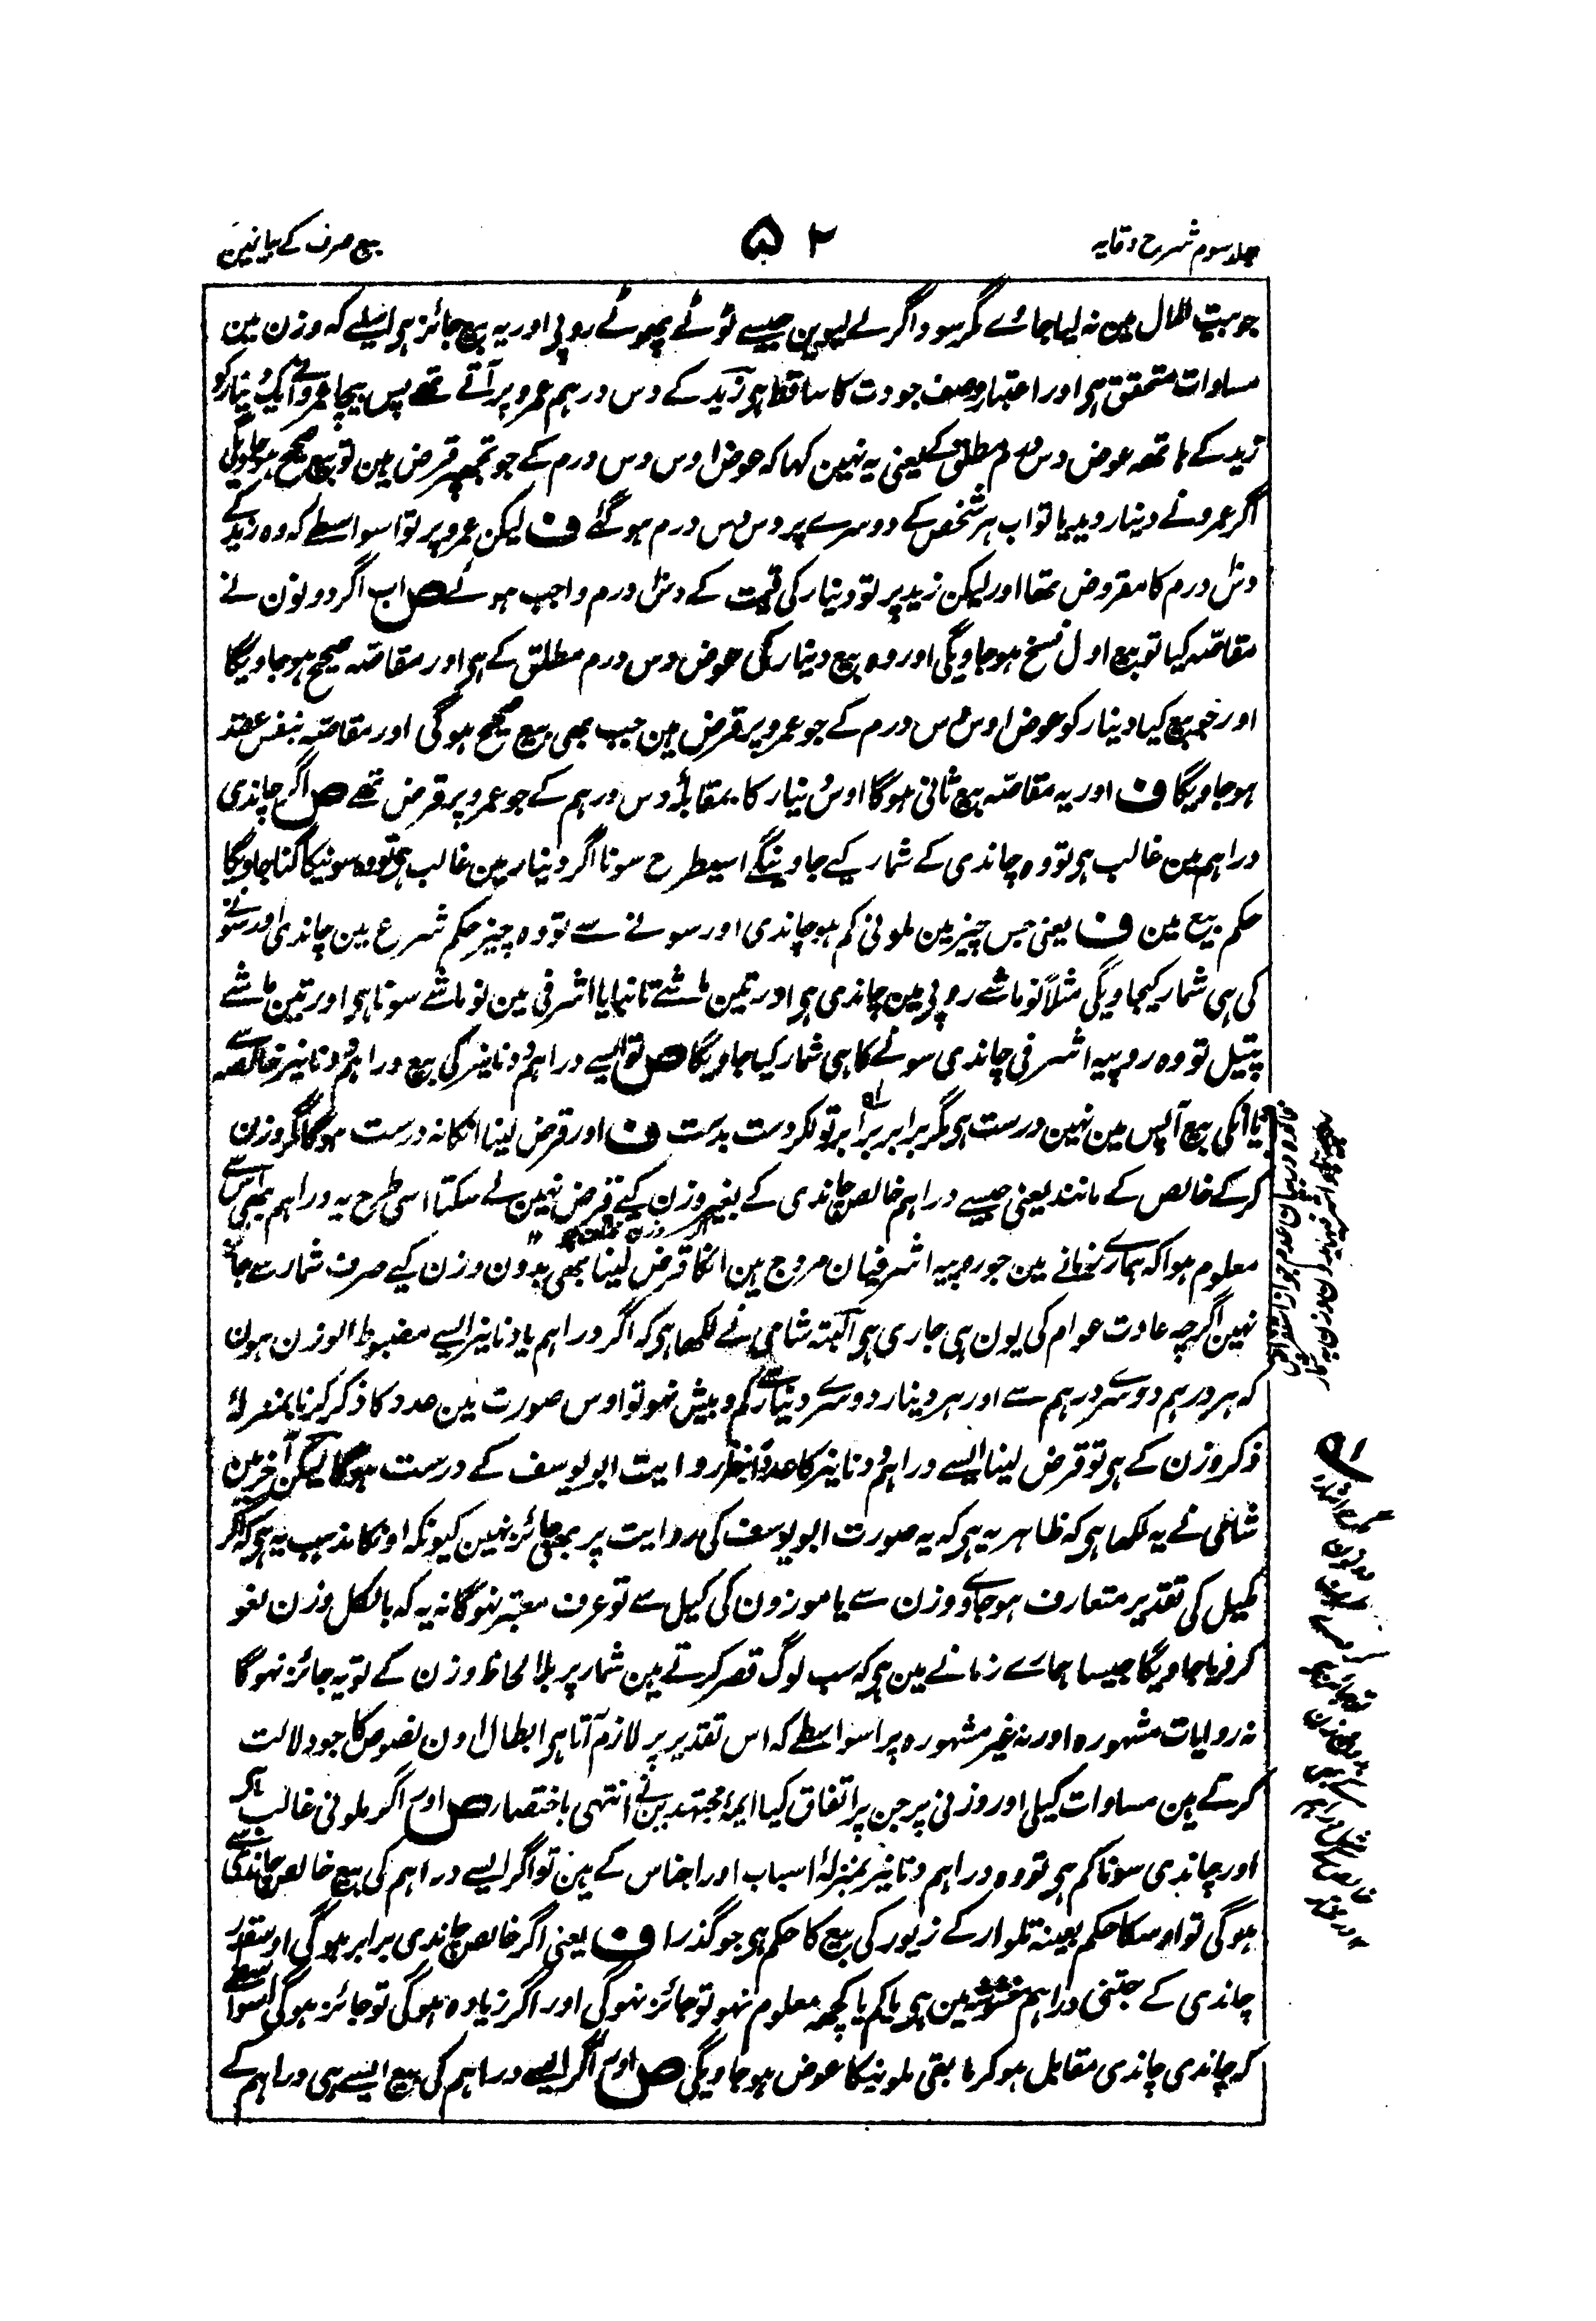 جلد سوم شرح وقایہ
۵۲
بیع صرف کے بیانمین
جو بیت المال مین نہ لیا جائے مگر سوداگر لے لیوین جیسے ٹوٹے پھوٹے روپی اور یہ بیع جائز ہی اسلیے کہ وزن مین
مساوات متحقق ہی اور اعتبار وصف جودت کا ساقط ہی زید کے دس درہم عمرو پر آتے تھے پس بیچا عمرو نے ایک دینار کو
زید کے ہاتھ عوض دس درم مطلق کے یعنی یہ نہین کہا کہ عوض اوس دس درم کے جو تجھپر قرض ہین تو بیع صحیح ہو جاویگی
اگر عمرو نے دینار دیدیا تو اب ہر شخص کے دوسرے پر دس دس درم ہو گئے ف لیکن عمرو پر تو اسواسطے کہ وہ زید کے
دس درم کا مقروض تھا اور لیکن زید پر تو دینار کی قیمت کے دس درم واجب ہوئے ص اب اگر دونون نے
مقاصہ کیا تو بیع اول فسخ ہو جاویگی اور وہ بیع دینار کی عوض دس درم مطلق کے ہی اور مقاصہ صحیح ہو جاویگا
اور جو بیع کیا دینار کو عوض اوس دس درم کے جو عمرو پر قرض ہین جب بھی بیع صحیح ہو گی اور مقاصہ بنفس عقد
ہو جاویگا ف اور یہ مقاصہ بیع ثانی ہو گا اوس دینار کا بمقابلہ دس درہم کے جو عمرو پر قرض تھے ص اگر چاندی
دراہم مین غالب ہی تو وہ چاندی کے شمار کیے جاوینگے اسیطرح سونا اگر دینار مین غالب ہی تو وہ سونیکا گنا جاویگا
حکم بیع مین ف یعنی جس چیز مین ملونی کم ہو چاندی اور سونے سے تو وہ چیز حکم شرع مین چاندی اور سونے
کی ہی شمار کیجاویگی مثلاً نو ماشے روپی مین چاندی ہی اور تین ماشے تانبا یا اشرفی مین نو ماشے سونا ہی اور تین ماشے
پیتل تو وہ روپیہ اشرفی چاندی سونے کا ہی شمار کیا جاویگا ص تو ایسے دراہم و دنانیر کی بیع دراہم و دنانیر خالصہ سے
یا انکی بیع آپس مین نہین درست ہی مگر برابر برابر تولکر دست بدست ف اور قرض لینا انکا نہ درست ہو گا مگر وزن
کر کے خالص کے مانند یعنی جیسے دراہم خالص چاندی کے بغیر وزن کیے قرض نہین لے سکتا اسی طرح یہ دراہم بھی اس سے
معلوم ہوا کہ ہمارے زمانے مین جو روپیہ اشرفیان مروج ہین انکا قرض لینا بھی بدون وزن کیے صرف شمار سے جائز
نہین اگرچہ عادت عوام کی یون ہی جاری ہی البتہ شامی نے لکھا ہی کہ اگر دراہم یا دنانیر ایسے مضبوط الوزن ہون
کہ ہر درہم دوسرے درہم سے اور ہر دینار دوسرے دینار سے کم و بیش نہو تو اوس صورت مین عدد کا ذکر کرنا بمنزلۂ
ذکر وزن کے ہی تو قرض لینا ایسے دراہم و دنانیر کا عدداً بنظر روایت ابو یوسف کے درست ہو گا لیکن آخر مین
شامی نے یہ لکھا ہی کہ ظاہر یہ ہی کہ یہ صورت ابو یوسف کی روایت پر بھی جائز نہین کیونکہ اونکا مذہب یہ ہی کہ اگر
مکیل کی تقدیر متعارف ہو جاوے وزن سے یا موزون کی کیل سے تو عرف معتبر نہوگا نہ یہ کہ بالکل وزن لغو
کر دیا جاویگا جیسا ہمارے زمانے مین ہی کہ سب لوگ قصر کرتے ہین شمار پر بلا لحاظ وزن کے تو یہ جائز نہو گا
نہ روایات مشہورہ اور نہ غیر مشہورہ پر اسواسطے کہ اس تقدیر پر لازم آتا ہی ابطال اون نصوص کا جو دلالت
کرتے ہین مساوات کیلی اور وزنی پر جن پر اتفاق کیا ایمۂ مجتہدین نے انتہی باختصار ص اور اگر ملونی غالب ہی
اور چاندی سونا کم ہی تو وہ دراہم دنانیر بمنزلۂ اسباب اور اجناس کے ہین تو اگر ایسے دراہم کی بیع خالص چاندی سے
ہو گی تو اوسکا حکم بعینہ تلوار کے زیور کی بیع کا حکم ہی جو گذرا ف یعنی اگر خالص چاندی برابر ہو گی اوسقدر
چاندی کے جتنی دراہم مغشوشہ مین ہی یا کم یا کچھ معلوم نہو تو جائز نہو گی اور اگر زیادہ ہو گی تو جائز ہو گی اسواسطے
کہ چاندی چاندی مقابل ہو کر مابقی ملونیکا عوض ہو جاویگی ص اور اگر ایسے دراہم کی بیع ایسے ہی دراہم کے